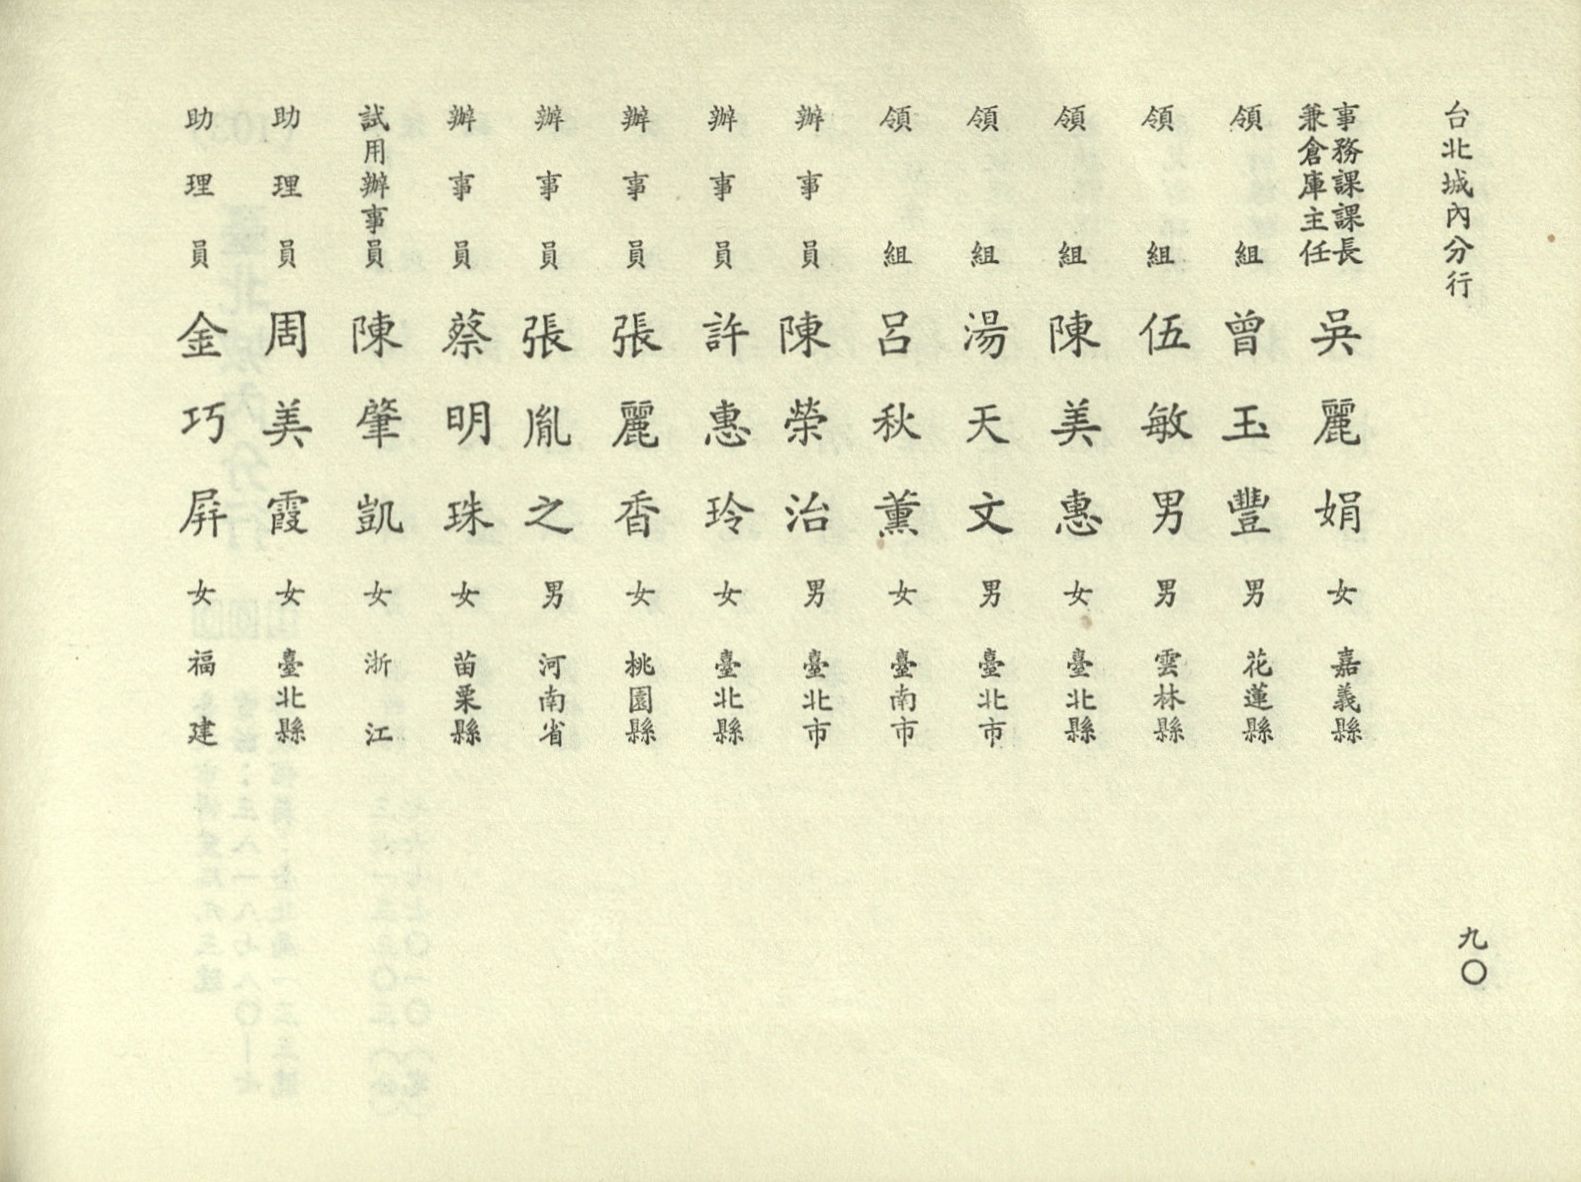 台北城內分行
九〇
事務課課長兼倉庫主任 吳麗娟 女 嘉義縣
領組 曾玉豐 男 花蓮縣
領組 伍敏男 男 雲林縣
領組 陳美惠 女 臺北縣
領組 湯天文 男 臺北市
領組 呂秋薰 女 臺南市
辦事員 陳榮治 男 臺北市
辦事員 許惠玲 女 臺北縣
辦事員 張麗香 女 桃園縣
辦事員 張胤之 男 河南省
辦事員 蔡明珠 女 苗栗縣
試用辦事員 陳肇凱 女 浙江
助理員 周美霞 女 臺北縣
助理員 金巧屏 女 福建